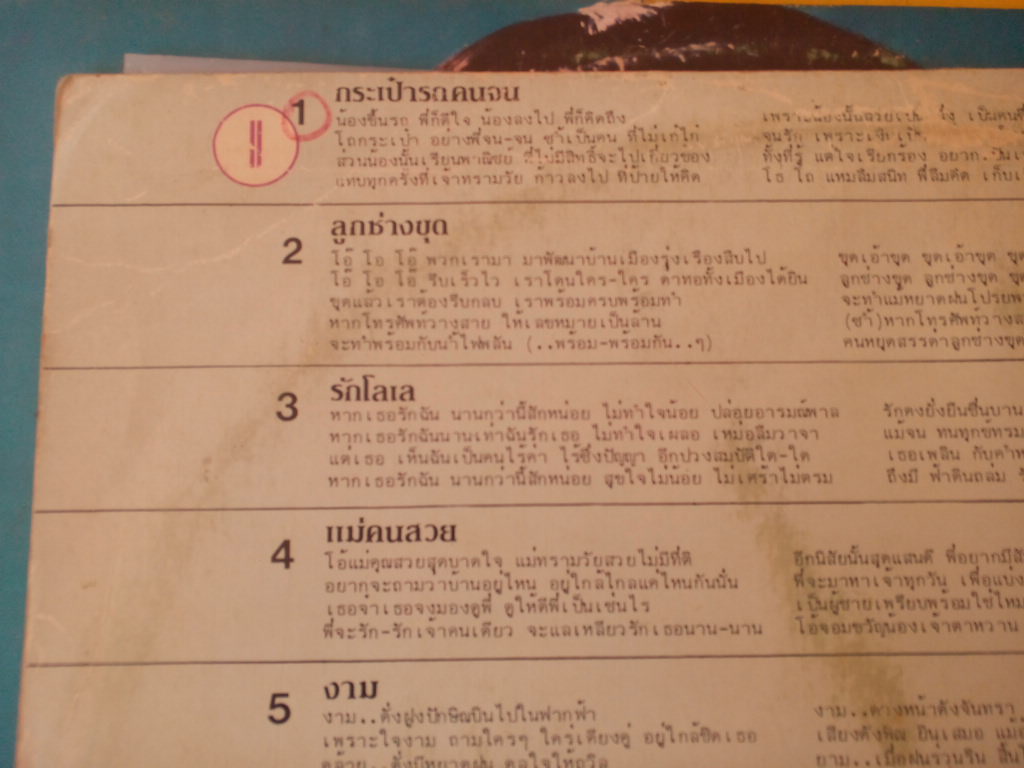 1
กระเป๋ารถคนจน
น้องขึ้นรถ พี่ก็ดีใจ น้องลงไป พี่ก็คิดถึง
โถกระเป๋า อย่างพี่จน-จน ซ้ำเป็นคน ที่ไม่เก๋ไก๋
ส่วนน้องนั้นเรียนพาณิชย์ ที่ไม่มีสิทธิ์จะไปเกี่ยวของ
แทบทุกครั้งที่เจ้าทรามวัย ก้าวลงไป ที่ป้ายให้คิด
เป็นคน
จนรัก เพราะ
ทั้งที่รู้ แต่ใจเรียกร้อง อยาก
โธ่ โถ แหมลืมสนิท พี่ลืมคิด เก็บ
2
ลูกช่างขุด
โอ๊ โอ โอ๊ พวกเรามา มาพัฒนาบ้านเมืองรุ่งเรืองสืบไป
โอ๊ โอ โอ๊ รีบเร็วไว เราโดนใคร-ใคร ด่าทอทั้งเมืองได้ยิน
ขุดแล้วเราต้องรีบกลบ เราพร้อมครบพร้อมทำ
หากโทรศัพท์วางสาย ให้เลขหมายเป็นล้าน
จะทำพร้อมกับน้ำไฟพลัน (..พร้อม-พร้อมกัน..ๆ)
ขุดเอ้าขุด ขุดเอ้าขุด
ลูกช่างขุด ลูกช่างขุด
จะทำแม่หยาดฝนโปรย
(ซ้ำ) หากโทรศัพท์วาง
คนหยุดสรรด่าลูกช่างขุด
3
รักโลเล
หากเธอรักฉัน นานกว่านี้สักหน่อย ไม่ทำใจน้อย ปล่อยอารมณ์พาล
หากเธอรักฉันนานเท่าฉันรักเธอ ไม่ทำใจเผลอ เหม่อลืมวาจา
แต่เธอ เห็นฉันเป็นคนไร้ค่า ไร้ซึ่งปัญญา อีกปวงสมบัติใด-ใด
หากเธอรักฉัน นานกว่านี้สักหน่อย สุขใจไม่น้อย ไม่เศร้าไม่ตรม
รักคงยั่งยืนชื่นบาน
แม้จน ทนทุกข์ทรม
เธอเพลิน กับคำ
ถึงมี ฟ้าดินถล่ม
4
แม่คนสวย
โอ้แม่คุณสวยสุดบาดใจ แม่ทรามวัยสวยไม่มีที่ติ
อยากจะถามว่าบ้านอยู่ไหน อยู่ใกล้ไกลแค่ไหนกันนั่น
เธอจ๋าเธอจงมองดูพี่ ดูให้ดีพี่เป็นเช่นไร
พี่จะรัก-รักเจ้าคนเดียว จะแลเหลียวรักเธอนาน-นาน
อีกนิสัยนั้นสุดแสนดี พี่อยากมี
พี่จะมาหาเจ้าทุกวัน เพื่อแบ่ง
เป็นผู้ชายเพรียบพร้อมใช่ไหม
โอ้จอมขวัญน้องเจ้าตาหวาน
5
งาม
งาม..ดั่งฝูงปักษิณบินไปในฟากฟ้า
เพราะใจงาม ถามใครๆ ใคร่เคียงคู่ อยู่ใกล้ชิดเธอ
คล้าย..ดั่งมีหยาดฝน
งาม..ดวงหน้าดั่งจันทรา
เสียงดังพิณ ยินเสมอ
ยาม..เมื่อฝนร่วงริน